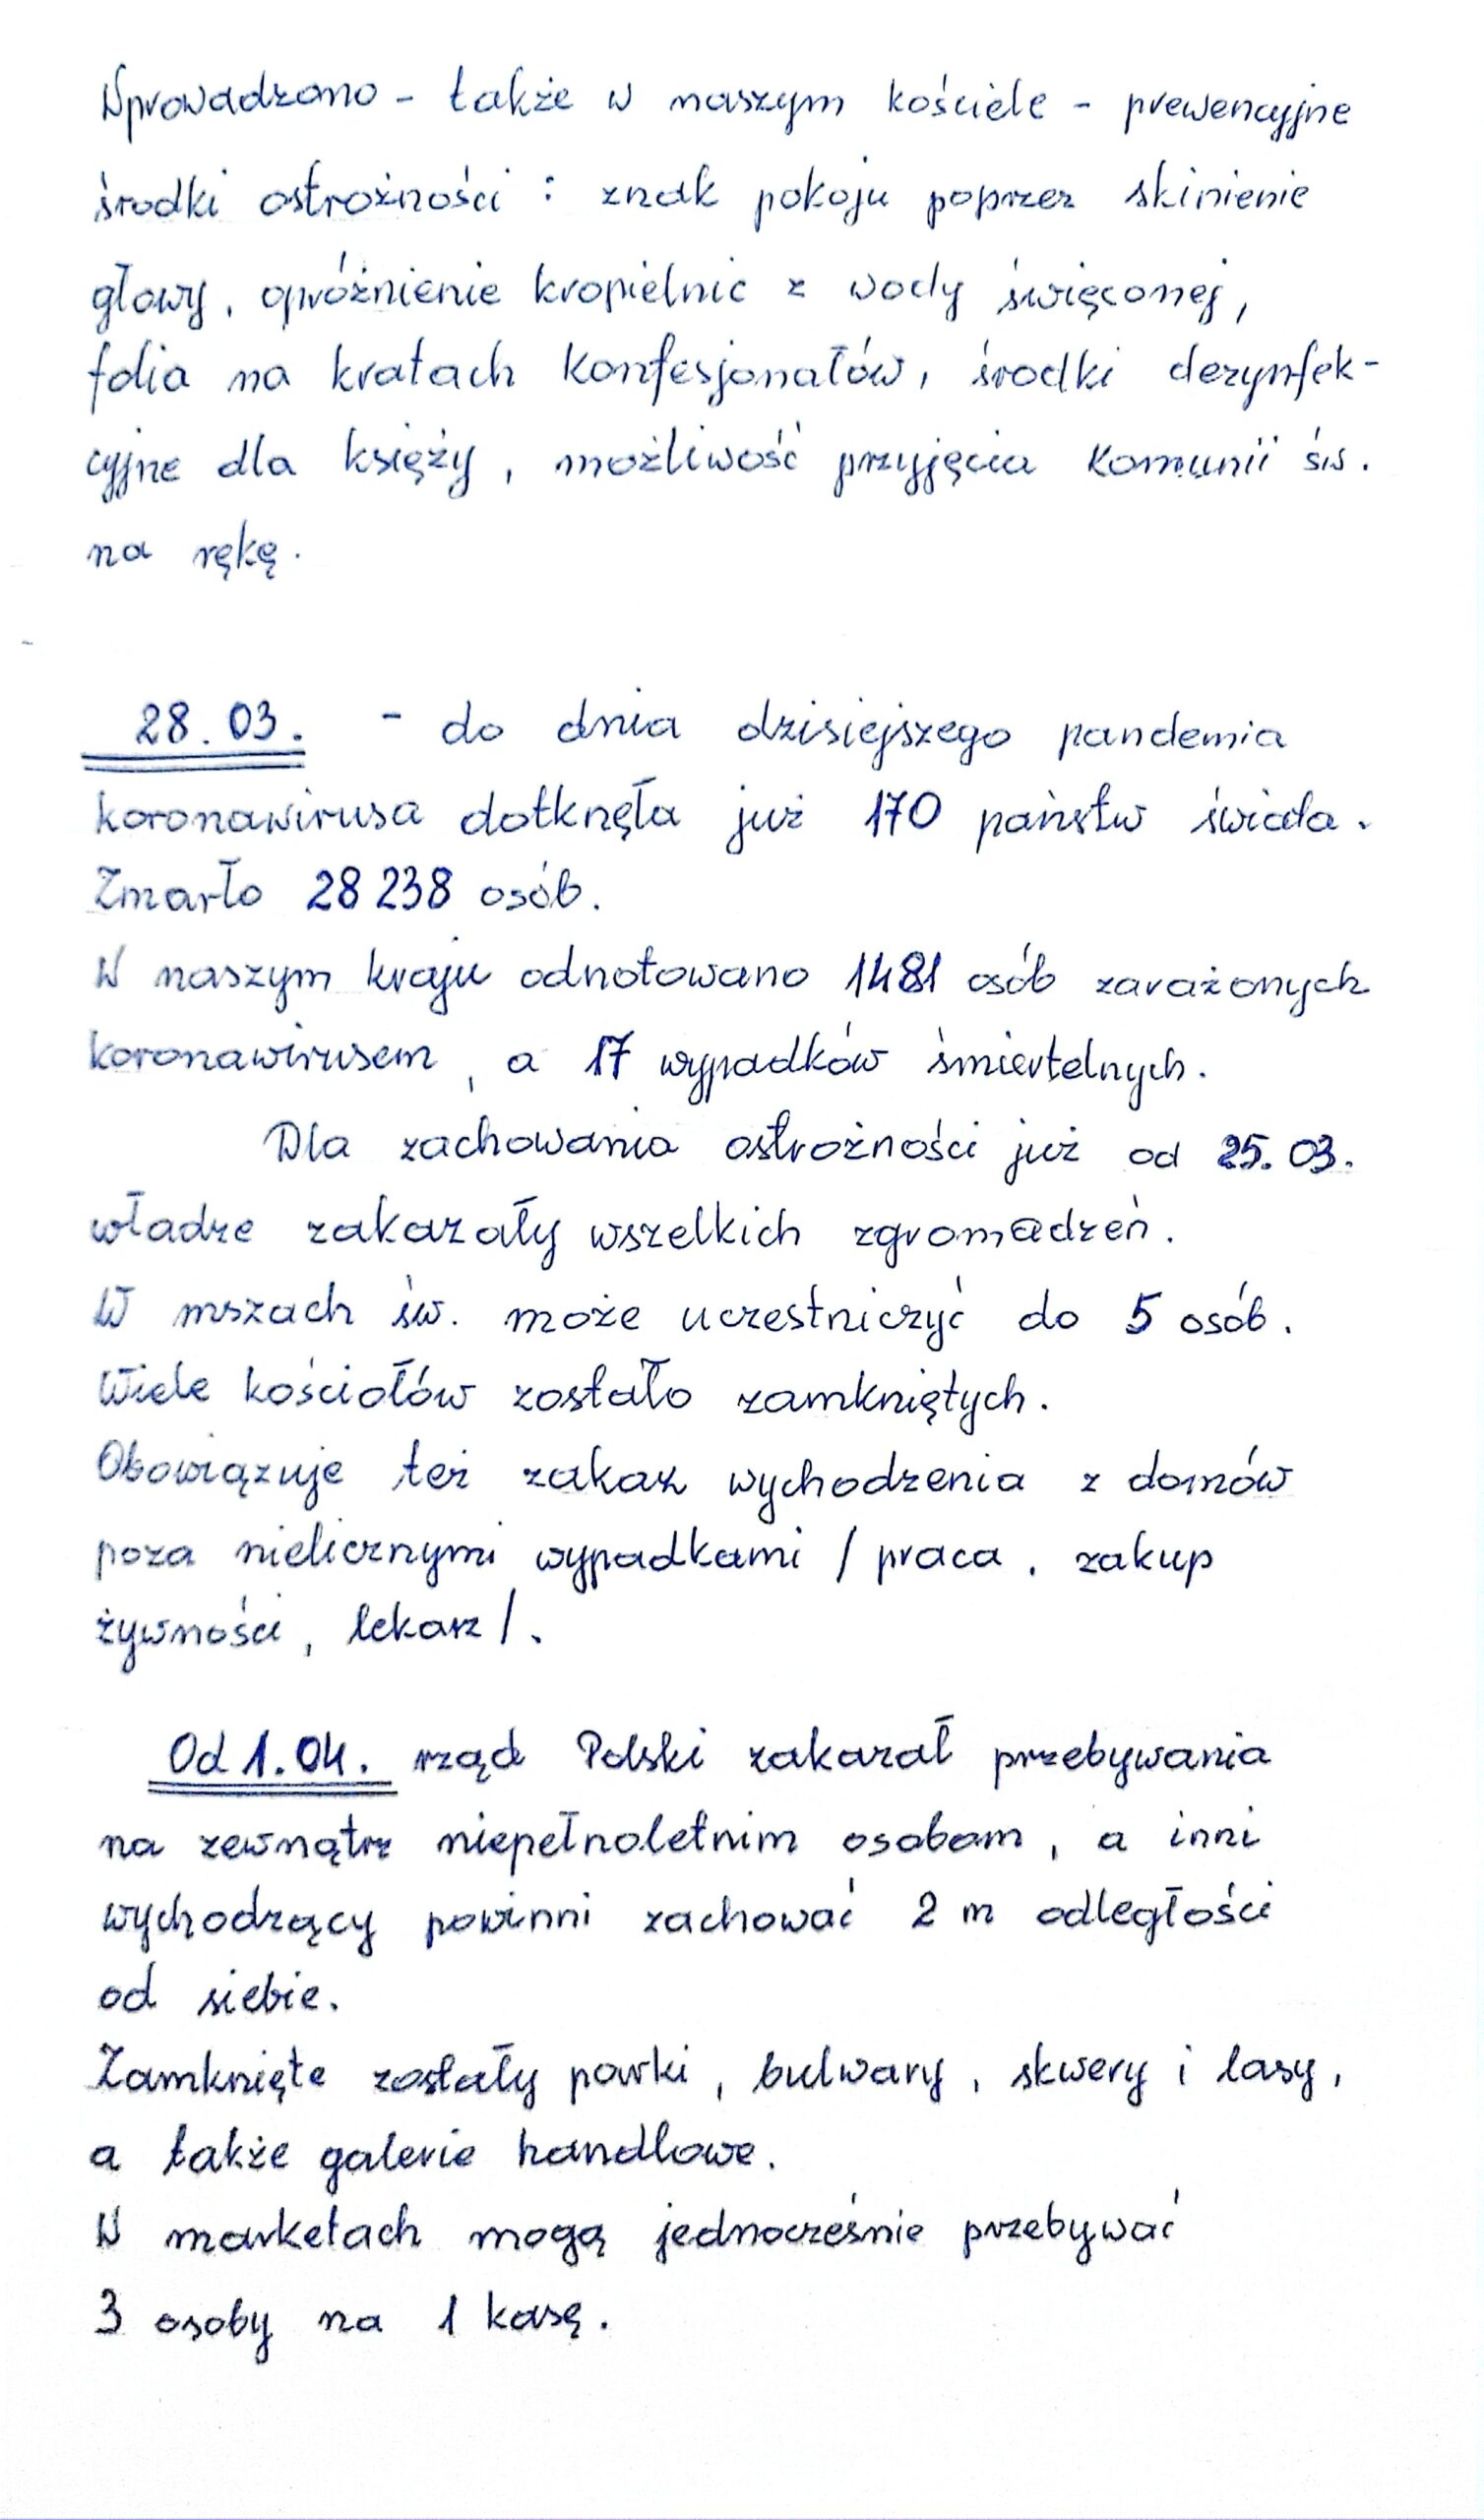 Wprowadzono - także w naszym kościele - prewencyjne
środki ostrożności : znak pokoju poprzez skinienie
głowy, opróżnienie kropielnic z wody święconej,
folia na kratach konfesjonałów, środki dezynfek-
cyjne dla księży, możliwość przyjęcia Komunii św.
na rękę.
28.03. - do dnia dzisiejszego pandemia
koronawirusa dotknęła już 170 państw świata.
Zmarło 28 238 osób.
W naszym kraju odnotowano 1481 osób zarażonych
koronawirusem, a 17 wypadków śmiertelnych.
Dla zachowania ostrożności już od 25.03.
władze zakazały wszelkich zgromadzeń.
W mszach św. może uczestniczyć do 5 osób.
Wiele kościołów zostało zamkniętych.
Obowiązuje też zakaz wychodzenia z domów
poza nielicznymi wypadkami / praca, zakup
żywności, lekarz /.
Od 1.04. rząd Polski zakazał przebywania
na zewnątrz niepełnoletnim osobom, a inni
wychodzący powinni zachować 2 m odległości
od siebie.
Zamknięte zostały parki, bulwary, skwery i lasy,
a także galerie handlowe.
W marketach mogą jednocześnie przebywać
3 osoby na 1 kasę.